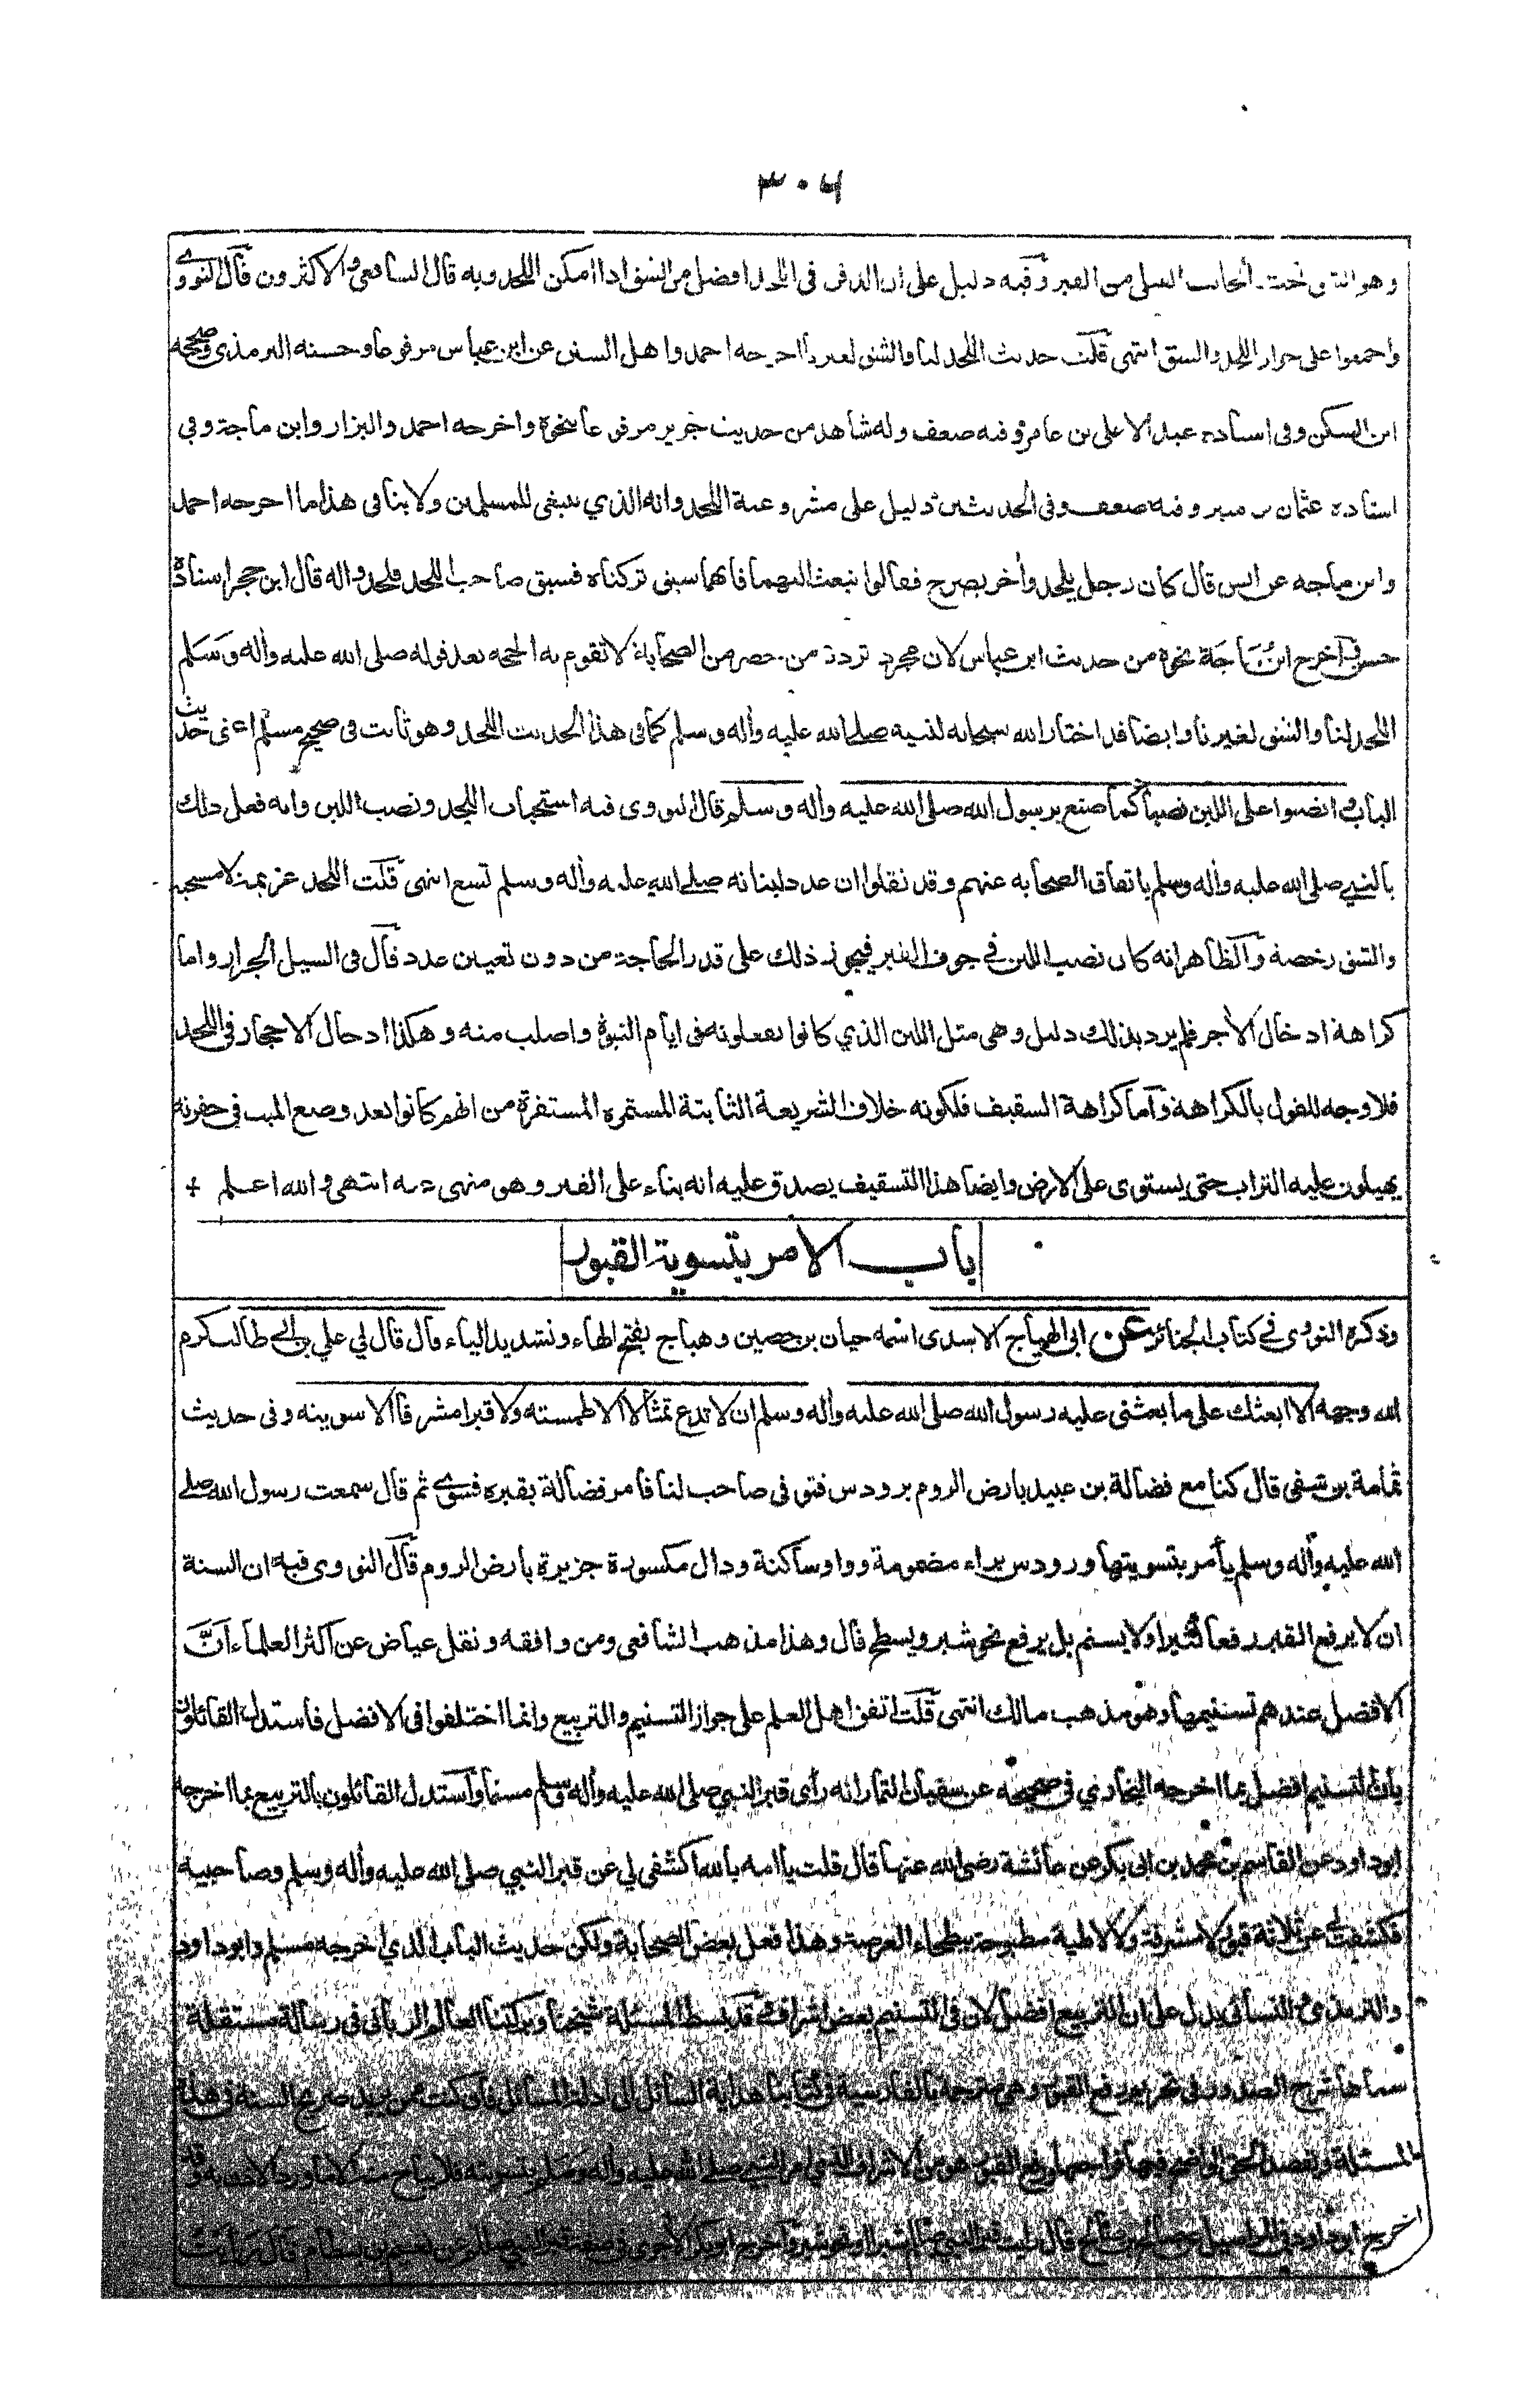 ٣٠٦
وهو الشق تحت الجانب القبلي من القبر وفيه دليل على ان الدفن في اللحد افضل من الشق اذا امكن اللحد وبه قال الشافعي والاكثرون قال النووي
واجمعوا على جواز اللحد والشق انتهى قلت حديث اللحد لنا والشق لغيرنا اخرجه احمد واهل السنن عن ابن عباس مرفوعا وحسنه الترمذي وصححه
ابن السكن وفي اسناده عبد الاعلى بن عامر وفيه ضعف وله شاهد من حديث جرير مرفوعا نحوه واخرجه احمد والبزار وابن ماجة وفي
اسناده عثمان بن عمير وفيه ضعف وفي الحديثين دليل على مشروعية اللحد وانه الذي ينبغي للمسلمين ولا ينافي هذا ما اخرجه احمد
وابن ماجه عن انس قال كان رجل يلحد وأخر يضرح فقالوا نبعث اليهما فايهما سبق تركناه فسبق صاحب اللحد فلحدوا له قال ابن حجر اسناده
حسن واخرج ابن ماجة نحوه من حديث ابن عباس لان مجرد تردد من حضر من الصحابة لا تقوم به الحجة بعد قوله صلى الله عليه وأله وسلم
اللحد لنا والشق لغيرنا وايضا قد اختار الله سبحانه لنبيه صلى الله عليه وأله وسلم كما في هذا الحديث اللحد وهو ثابت في صحيح مسلم اعني حديث
الباب وانصبوا على اللبن نصبا كما صنع برسول الله صلى الله عليه وأله وسلم قال النووي فيه استحباب اللحد ونصب اللبن وانه فعل ذلك
بالنبي صلى الله عليه وأله وسلم باتفاق الصحابة عنهم وقد نقلوا ان عدد لبناته صلى الله عليه وأله وسلم تسع انتهى قلت اللحد عزيمة لا مستحب
والشق رخصة والظاهر انه كان نصب اللبن في جوف القبر فيجوز ذلك على قدر الحاجة من دون تعيين عدد قال في السيل الجرار واما
كراهة ادخال الأجر فلم يرد بذلك دليل وهي مثل اللبن الذي كانوا يفعلونه في ايام النبوة واصلب منه وهكذا ادخال الاحجار في اللحد
فلا وجه للقول بالكراهة واما كراهة السقيف فلكونه خلاف الشريعة الثابتة المستمرة المستقرة من انهم كانوا بعد وضع الميت في حفرته
يهيلون عليه التراب حتى يستوى على الارض وايضا هذا التسقيف يصدق عليه انه بناء على القبر وهو منهي عنه انتهى والله اعلم
باب الامر بتسوية القبور
وذكره النووي في كتاب الجنائز عن ابي الهياج الاسدى اسمه حيان بن حصين وهياج بفتح الهاء وتشديد الياء قال قال لي علي بن ابي طالب كرم
الله وجهه الا ابعثك على ما بعثني عليه رسول الله صلى الله عليه وأله وسلم ان لا تدع تمثالا الا طمسته ولا قبرا مشرفا الا سويته وفي حديث
ثمامة بن شفي قال كنا مع فضالة بن عبيد بارض الروم برودس فتوفي صاحب لنا فامر فضالة بقبره فسوي ثم قال سمعت رسول الله صلى
الله عليه وأله وسلم يأمر بتسويتها ورودس براء مضمومة وواو ساكنة ودال مكسورة جزيرة بارض الروم قال النووي فيه ان السنة
ان لا يرفع القبر رفعا كثيرا ولا يسنم بل يرفع نحو شبر ويسطح قال وهذا مذهب الشافعي ومن وافقه ونقل عياض عن اكثر العلماء أنَّ
الافضل عندهم تسنيمها وهو مذهب مالك انتهى قلت اتفق اهل العلم على جواز التسنيم والتربيع وانما اختلفوا في الافضل فاستدل القائلون
بان التسنيم افضل بما اخرجه البخاري في صحيحه عن سفيان التمار انه رأى قبر النبي صلى الله عليه وأله وسلم مسنما واستدل القائلون بالتربيع بما اخرجه
ابوداود عن القاسم بن محمد بن ابي بكر عن عائشة رضي الله عنها قال قلت يا امه بالله اكشفي لي عن قبر النبي صلى الله عليه وأله وسلم وصاحبيه
فكشفت لي عن ثلاثة قبور لا مشرفة ولا لاطية مطبوحة ببطحاء العرصة وهذا فعل بعض الصحابة ولكن حديث الباب الذي اخرجه مسلم وابو داود
والترمذي والنسائي يدل على ان التربيع افضل لان في التسنيم بعض اشراف وقد بسط المسئلة شيخنا وبركتنا العالم الرباني في رسالة مستقلة
سماها شرح الصدور في تحريم رفع القبور وهي مترجمة بالفارسية في كتابنا هداية السائل الى ادلة المسائل فان كنت ممن يريد صريح السنة في هذه
المسئلة وتقصد الحق الواضح فيها فراجعها ورفع القبور هو من الاشراف الذي امر النبي صلى الله عليه وأله وسلم بتسويته فلا يباح منه الا ما ورد الاذن به وقد
اخرج ابو داود في المراسيل عن صالح بن ابي صالح قال رأيت قبر النبي صلعم شبرا او نحو شبر واخرج ابو بكر الآجري في صفة قبر النبي صلعم عن غنيم بن بسطام قال رأيت